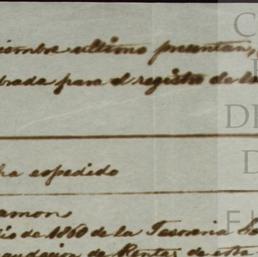 iembre ultimo presentan,
brada para el registro de lo
ha espedido
amon
lio de 1860 de la Tesoreria
audacion de Rentas de esta